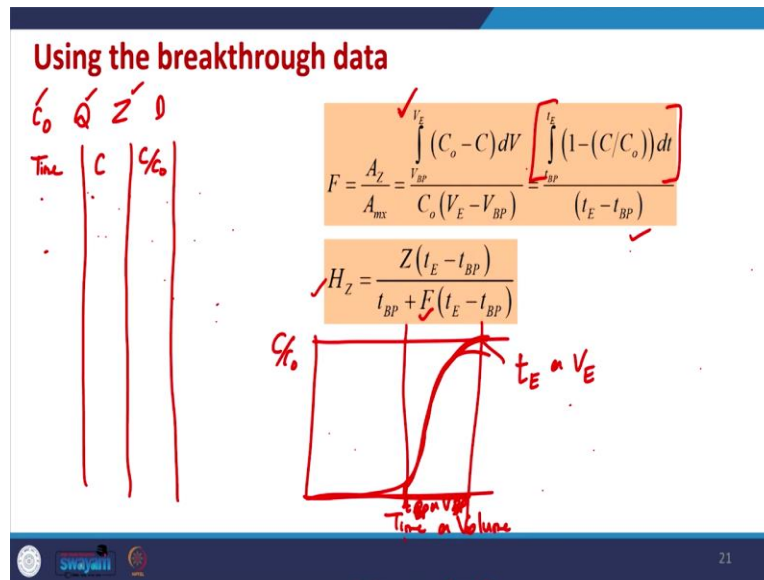 Using the breakthrough data
C₀ Q Z D
Time C C/C₀
F = A_Z / A_mx = ∫_{V_BP}^{V_E} (C_o − C) dV / C_o (V_E − V_BP) = ∫_{t_BP}^{t_E} (1 − (C/C_o)) dt / (t_E − t_BP)
H_Z = Z (t_E − t_BP) / t_BP + F (t_E − t_BP)
C/C₀
t_E or V_E
Time or Volume
swayam
21